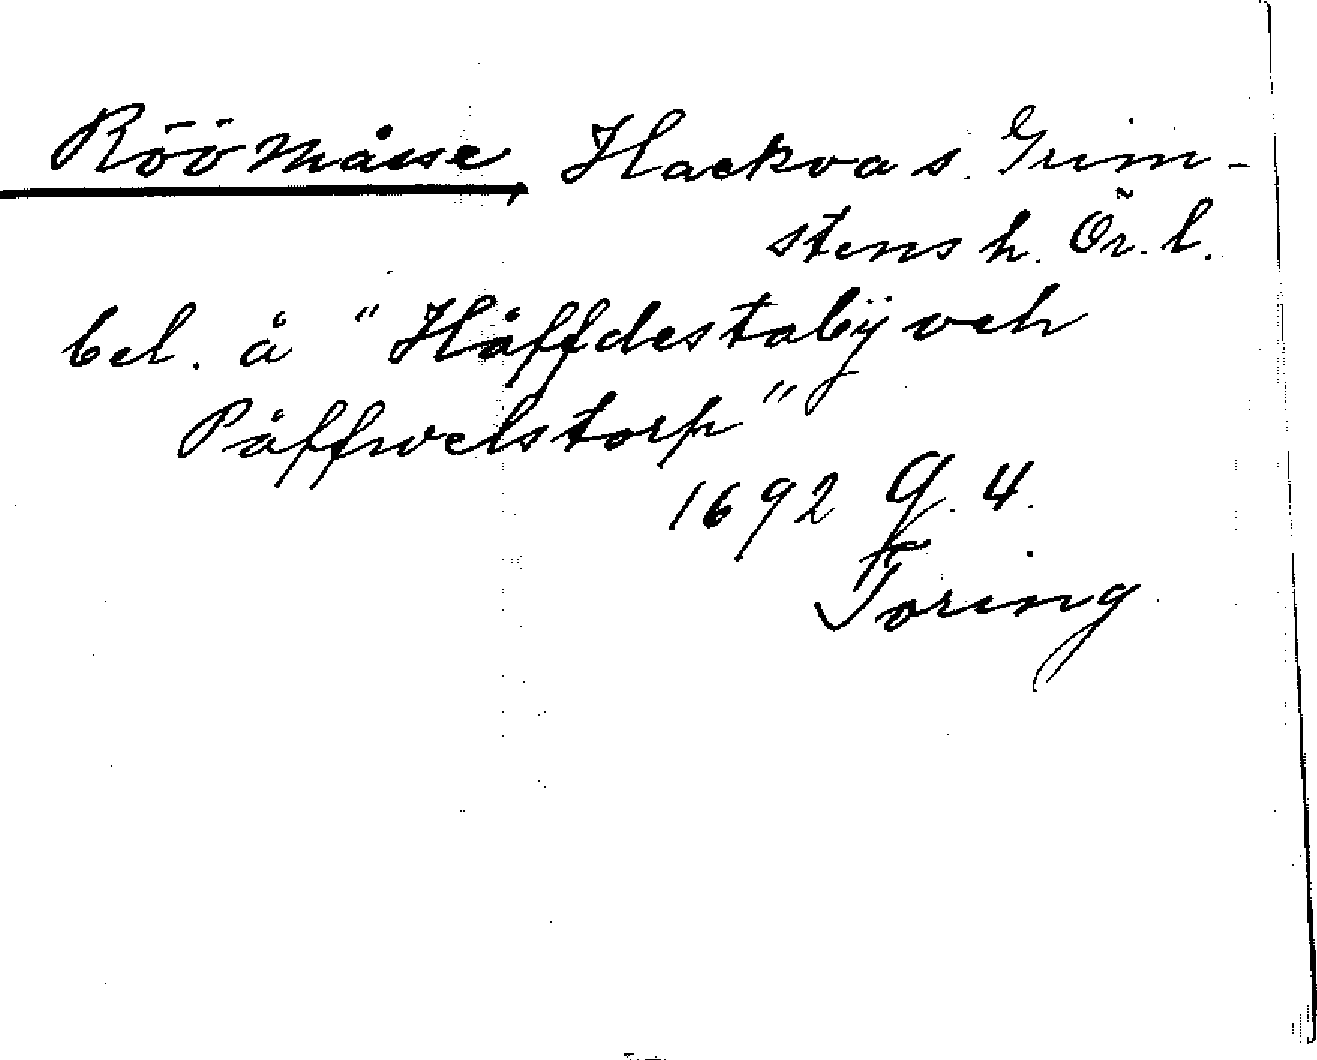 Röö måsse, Hackva s. Grim-
stens h. Ör. l.
bel. å "Håffdestabÿ och
Påffwelstorp"
1692 G. 4.
Toring